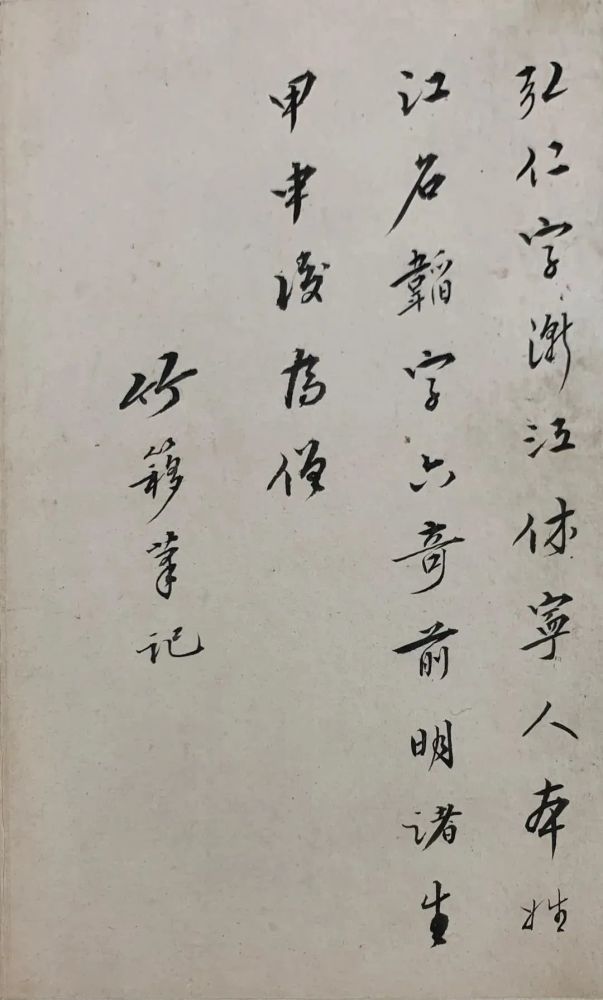 弘仁字漸江休寧人本姓
江名韜字六奇前明諸生
甲申後為僧
竹簃筆記